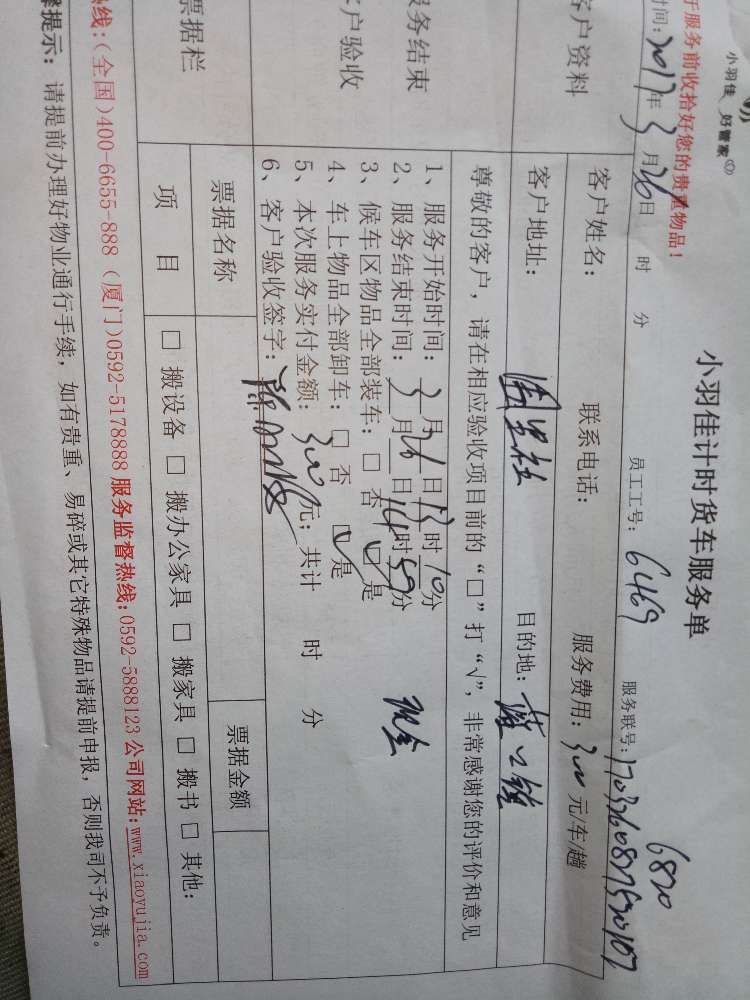 小羽佳 好管家
小羽佳计时货车服务单
于服务前收拾好您的贵重物品！
6820
时间：2017年3月26日 时 分 员工工号：6469 服务联号：
客户资料
客户姓名： 联系电话： 服务费用：300元/车/趟
客户地址： 目的地：
服务结束
客户验收
尊敬的客户，请在相应验收项目前的“□”打“√”，非常感谢您的评价和意见
1、服务开始时间：3月26日13时10分
2、服务结束时间：3月26日14时59分 现金
3、候车区物品全部装车：□ 否 ☑ 是
4、车上物品全部卸车：□ 否 ☑ 是
5、本次服务实付金额：300元；共计 时 分
6、客户验收签字：
票据栏
票据名称 票据金额
项 目 □ 搬设备 □ 搬办公家具 □ 搬家具 □ 搬书 □ 其他：
热线：(全国)400-6655-888 (厦门)0592-5178888 服务监督热线：0592-5888123 公司网站：www.xiaoyujia.com
提示：请提前办理好物业通行手续，如有贵重、易碎或其它特殊物品请提前申报，否则我司不予负责。